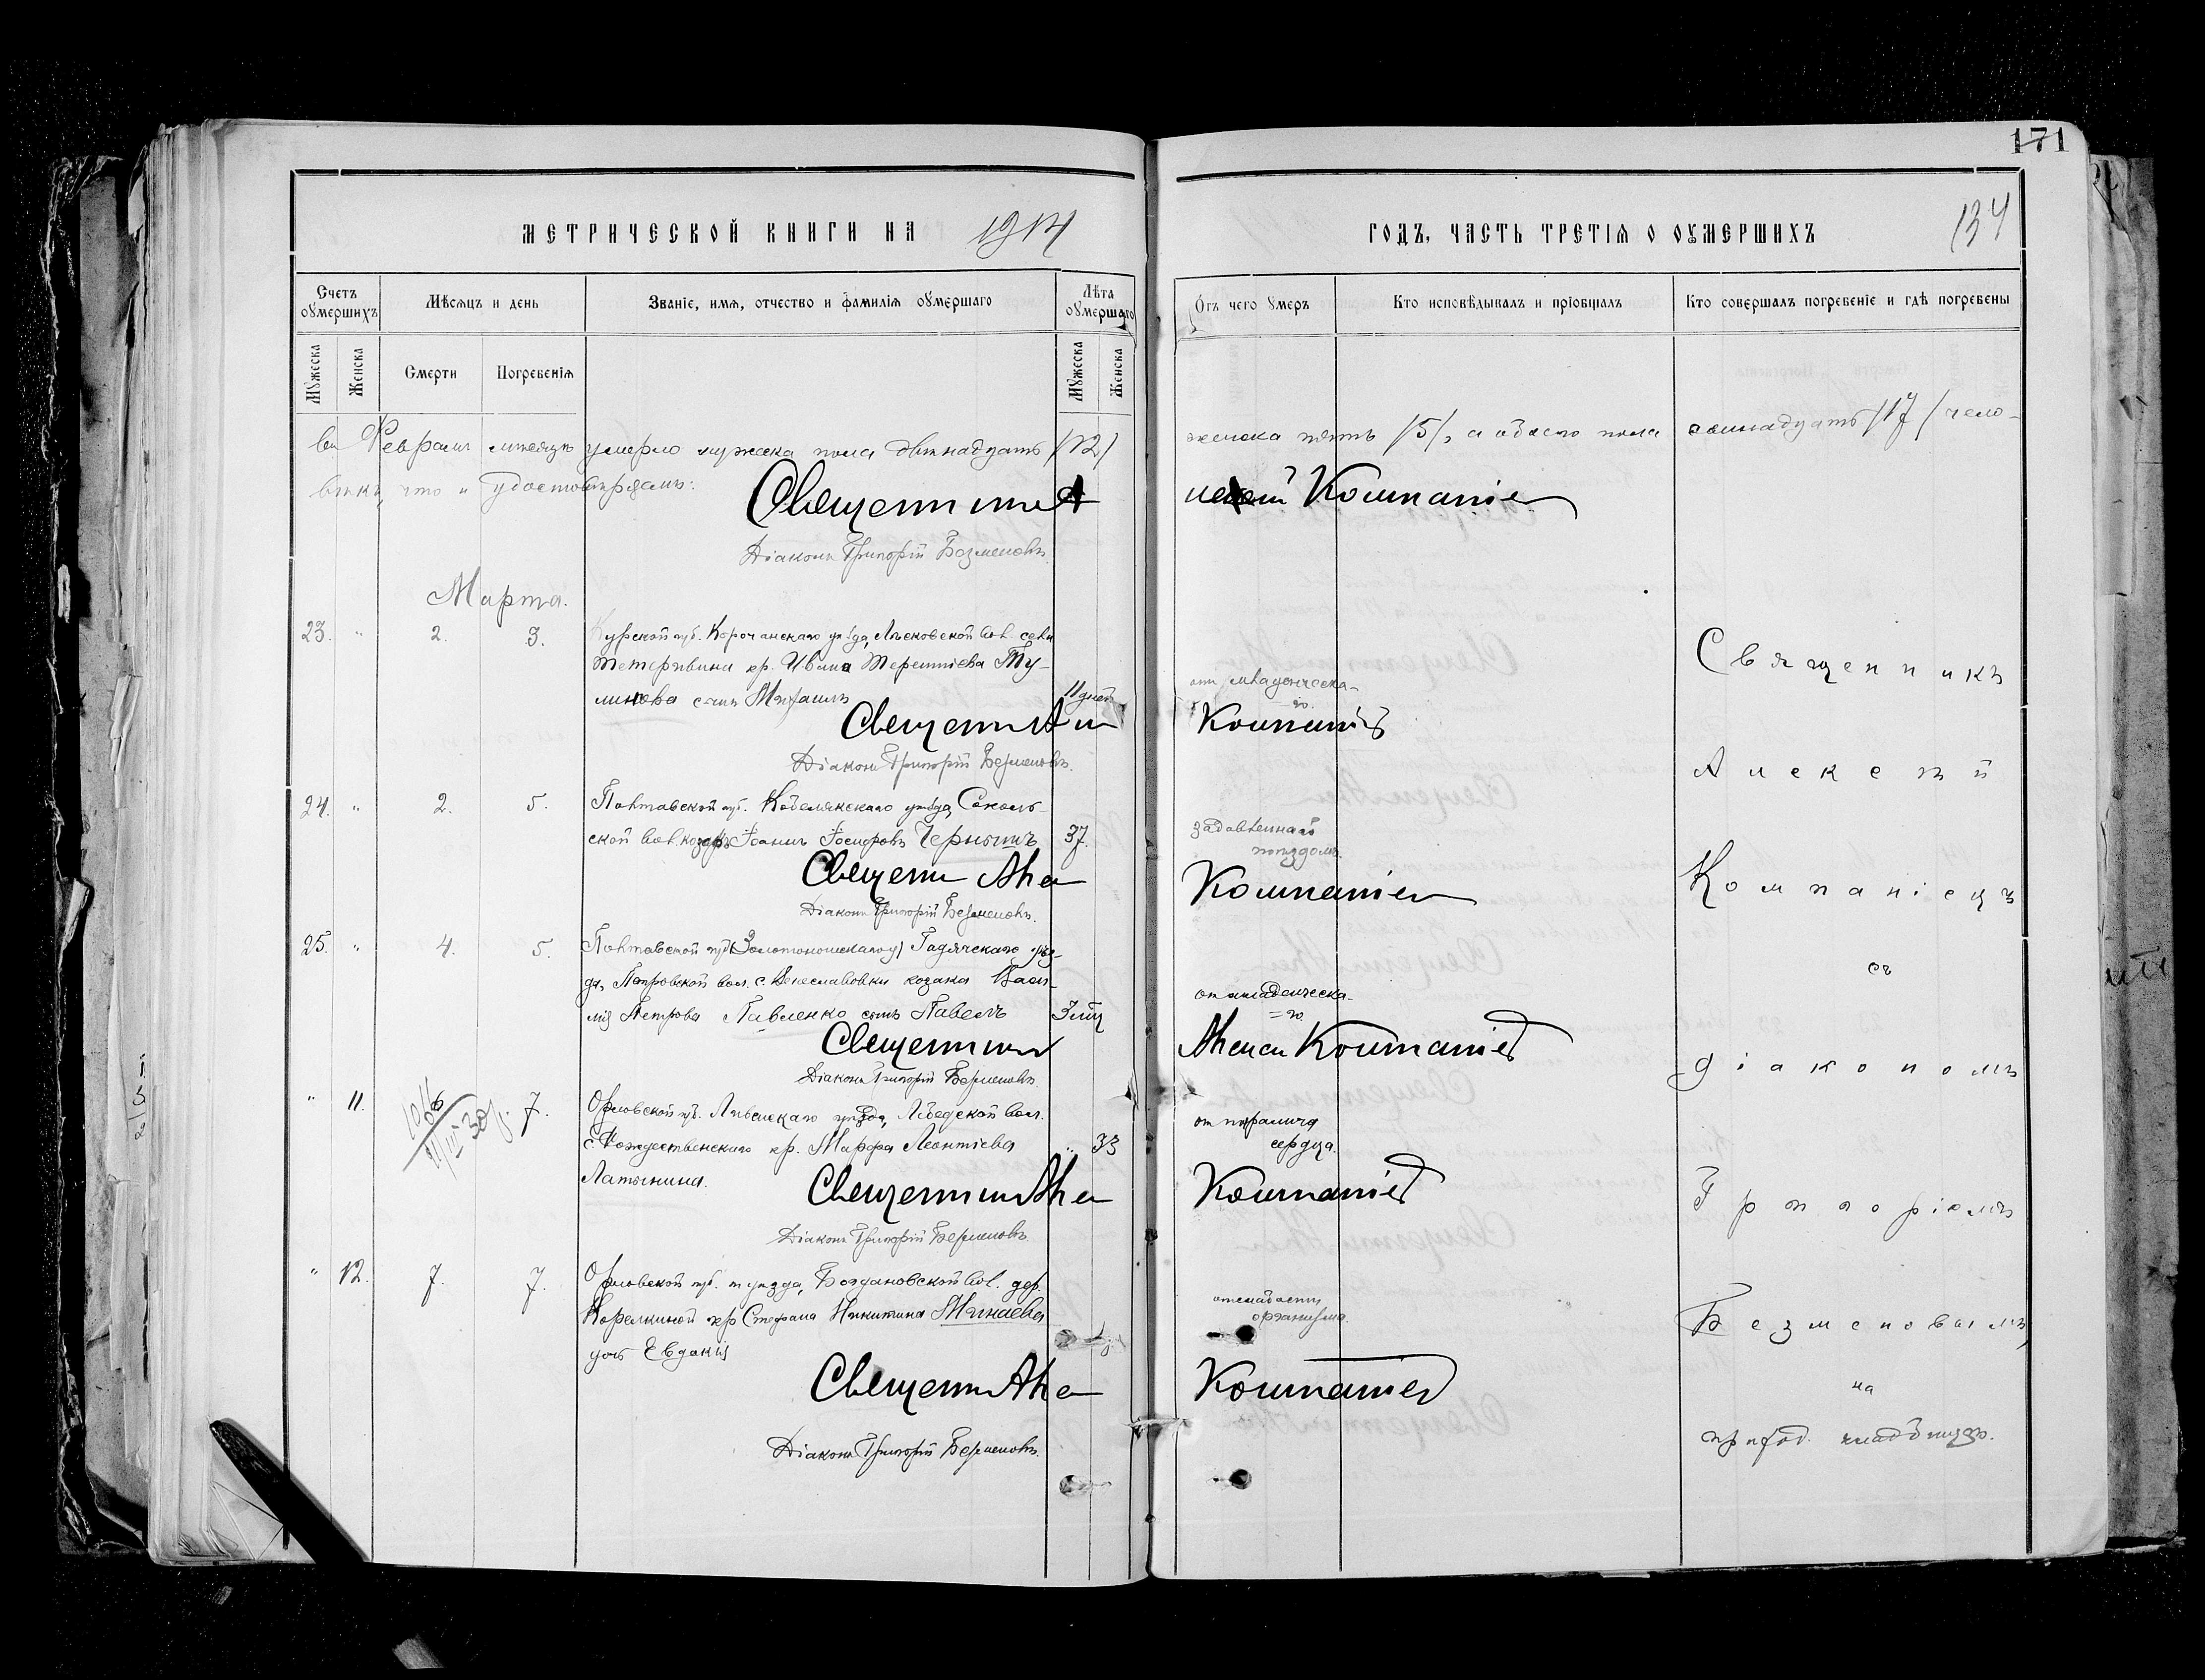 171
134
МЕТРИЧЕСКОЙ КНИГИ НА 1914 ГОДЪ, ЧАСТЬ ТРЕТІЯ О ОУМЕРШИХЪ
Счетъ оумершихъ
Мѣсяцъ и день
Званіе, имя, отчество и фамилія оумершаго
Лѣта оумершаго
Отъ чего умеръ
Кто исповѣдывалъ и пріобщалъ
Кто совершалъ погребеніе и гдѣ погребены
Мужеска
Женска
Смерти
Погребенія
Мужеска
Женска
въ Февралѣ мѣсяцѣ умерло мужеска пола двѣнадцать /12/ женска пять /5/, а обоего пола семнадцать /17/ чело-
вѣкъ, что и удостовѣряемъ:
Священникъ Компаніец
Діаконъ Григорій Безменовъ
Марта.
23. " 2. 3. Курской губ. Корочанскаго уѣзда, вол. села
кр. Ивана Терентіева Ту-
сынъ Михаилъ 11 дней отъ младенческа-
го
Священник Компаніец
Діаконъ Григорій Безменовъ.
24. " 2. 5. Полтавской губ. Кобелякскаго уѣзда, Соколь-
ской вол. козакъ Іоаннъ Іосифовъ Чернышъ 37. задавленный
поѣздомъ.
Священн Але Компаніец
Діаконъ Григорій Безменовъ.
25. " 4. 5. Полтавской губ. (Золотоношскаго у) Гадячскаго уѣз-
да, Петровской вол. с. Венеславовки козака Васи-
лія Петрова Павленко сынъ Павелъ 3 мѣс отъ младенческа-
=го.
Священник Алекси Компаніец
Діаконъ Григорій Безменовъ.
" 11. 6 7. Орловской губ. Ливенскаго уѣзда, вол.
с. Рождественскаго кр. Марфа Леонтіева " 33 от паралича
сердца.
Латынина.
Священник Але Компаніец
Діаконъ Григорій Безменовъ
" 12. 7. 7. Орловской губ. и уѣзда, Богдановской вол. дер.
кр Стефана Никитина Минаева
дочь Евдокія
от слабости
организма.
Священн Але Компаніец
Діаконъ Григорій Безменовъ.
Священникъ
Алексѣй
Компаніецъ
съ
діакономъ
Григоріемъ
Безменовымъ
на
приход. кладбищѣ.